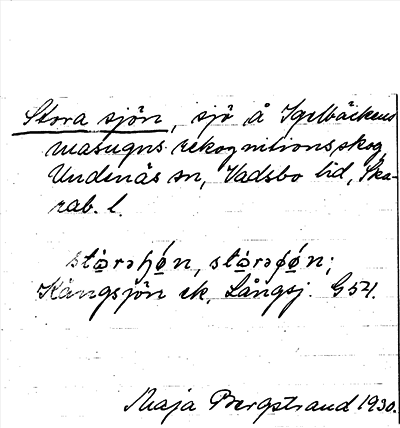 Stora sjön, sjö å Igelbäckens
masugns rekognitionsskog
Undenäs sn, Vadsbo hd, Ska-
rab. l.
Kångsjön ek, Långsj. G 54.
Maja Bergstrand 1930.